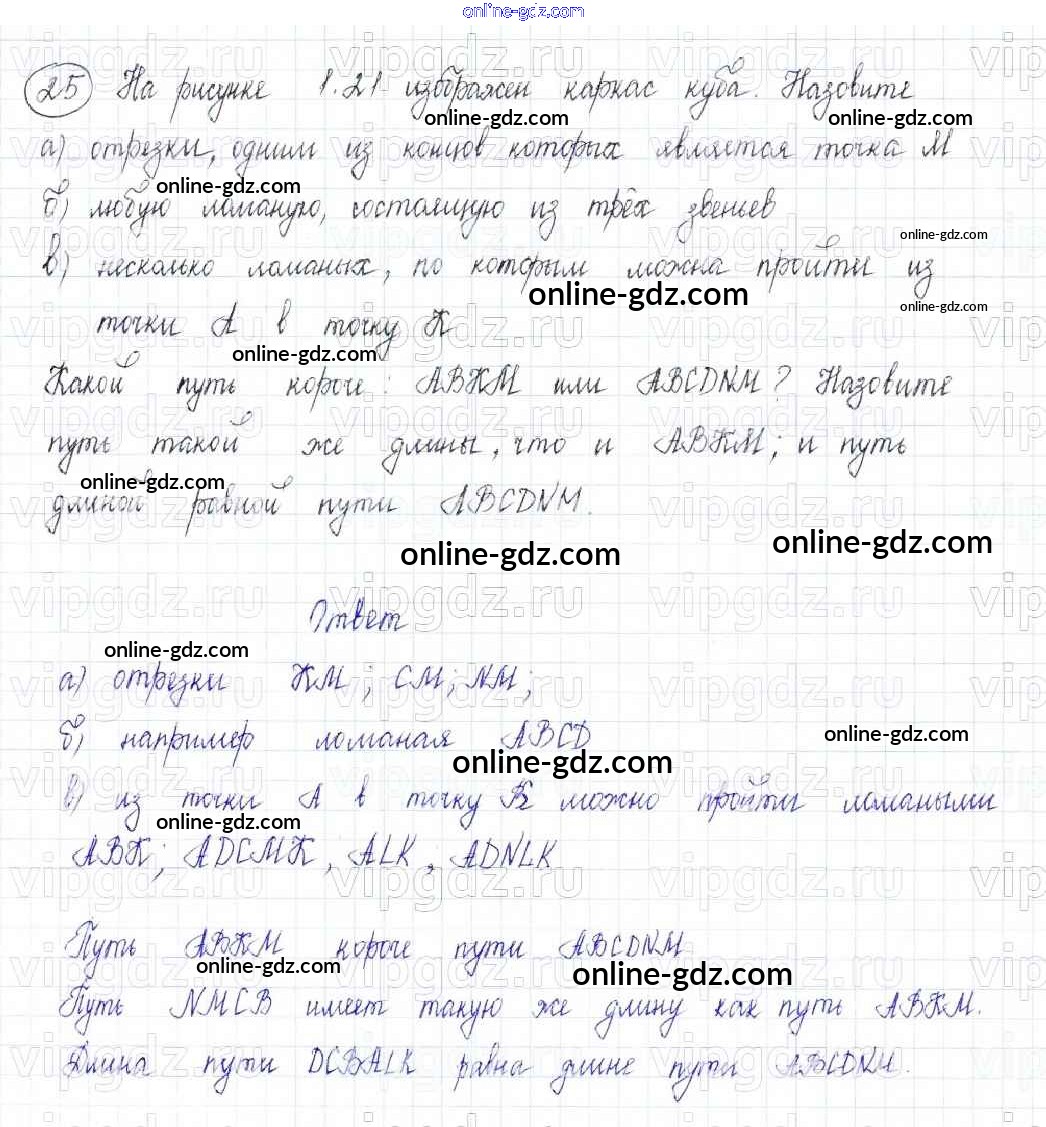 online-gdz.com
25 На рисунке 1.21 изображен каркас куба. Назовите
online-gdz.com online-gdz.com
а) отрезки, одним из концов которых является точка М
online-gdz.com
б) любую ломаную, состоящую из трёх звеньев
online-gdz.com
в) несколько ломаных, по которым можна пройти из
online-gdz.com
online-gdz.com
точки А в точку К
online-gdz.com
Какой путь короче: АВКМ или ABCDNM? Назовите
путь такой же длины, что и АВКМ; и путь
online-gdz.com
длиной равной пути ABCDNM.
online-gdz.com online-gdz.com
vipgdz.ru vipgdz.ru vipgdz.ru vip
Ответ
online-gdz.com
а) отрезки КМ; СМ; NM;
online-gdz.com
б) например ломаная ABCD
online-gdz.com
в) из точки А в точку К можно пройти ломаными
online-gdz.com
АВК; ADCMK, ALK, ADNLK
vipgdz.ru vipgdz.ru vipgdz.ru vip
Путь АВКМ короче пути ABCDNM
online-gdz.com online-gdz.com
Путь NMCB имеет такую же длину как путь АВКМ.
Длина пути DCBALK равна длине пути ABCDNM.